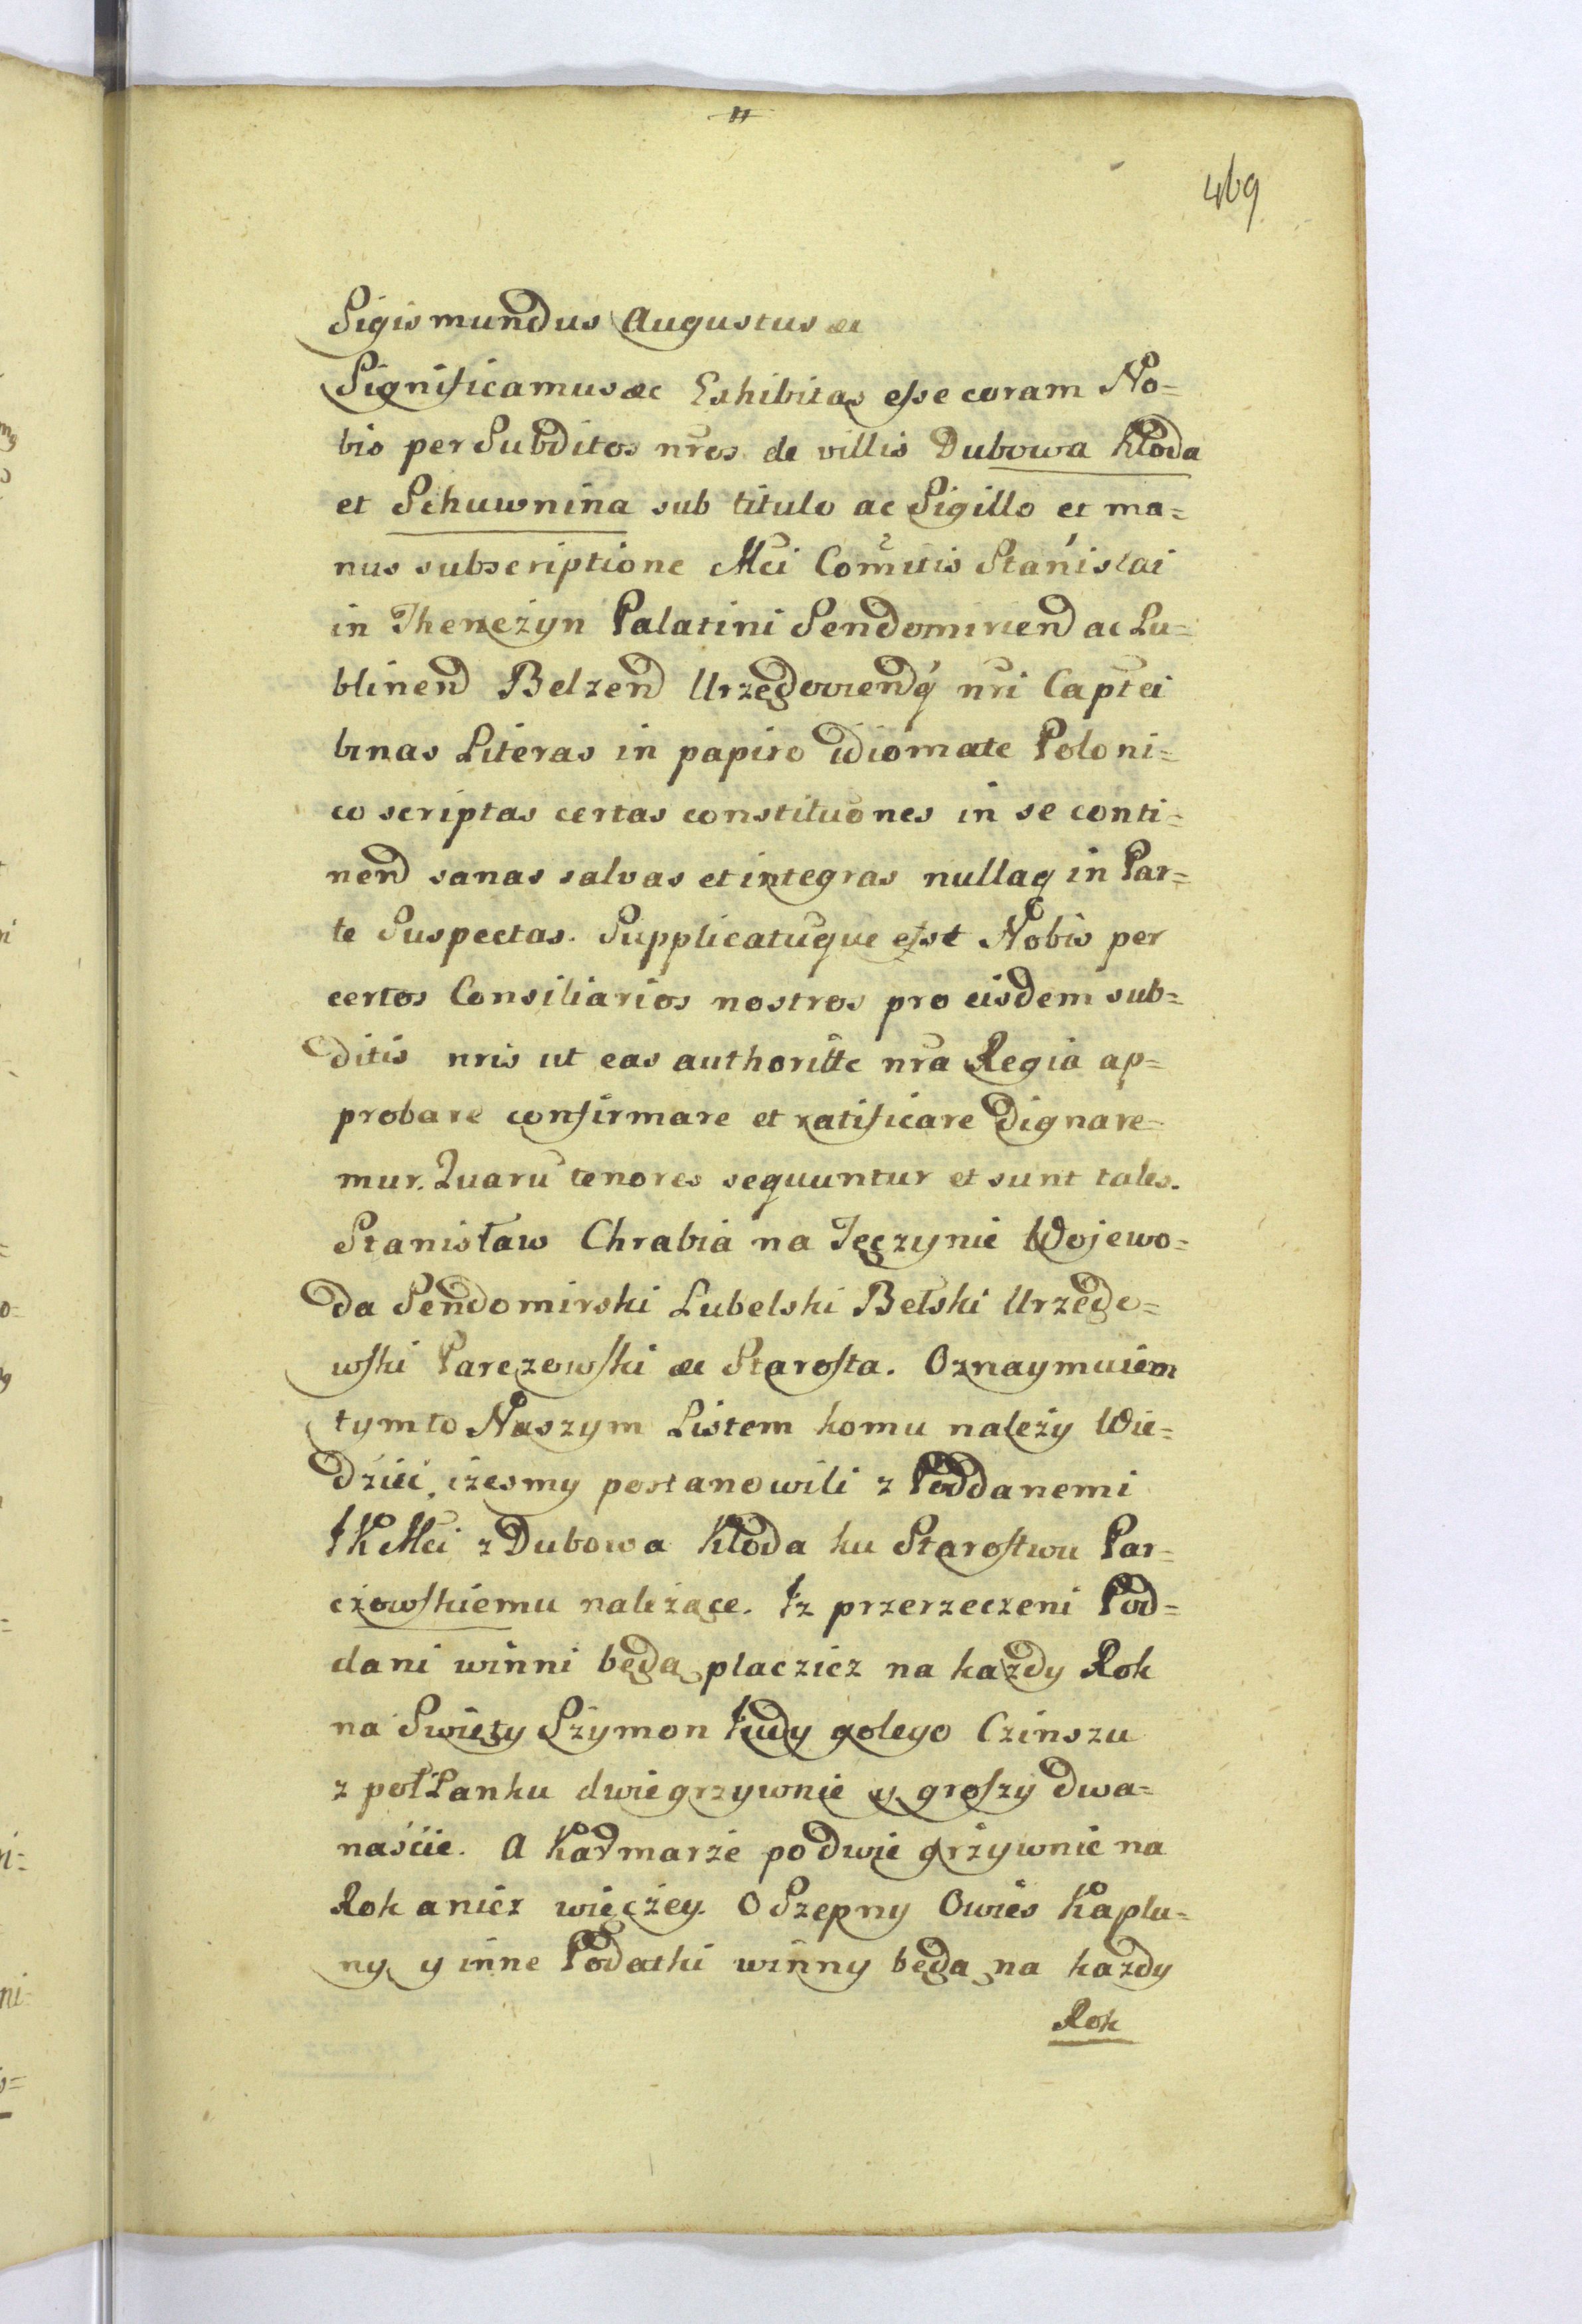 469
Sigismundus Augustus &c
Significamus &c Exhibitas esse coram No=
bis per Subditos nros de villis Dubowa Kłoda
et Schuwnina sub titulo ac Sigillo et ma=
nus subscriptione Mci Comitis Stanislai
in Thenczyn Palatini Sendomirien ac Lu=
blinen Belzen Urzędowienq nri Captei
binas Literas in papiro idiomate Poloni=
co scriptas certas constituones in se conti=
nen sanas salvas et integras nullaq in Par=
te Suspectas. Supplicatuque esst Nobis per
certos Consiliarios nostros pro eisdem sub=
ditis nris ut eas authoritte nra Regia ap=
probare confirmare et ratificare dignare=
mur. Quaru tenores sequuntur et sunt tales.
Stanisław Chrabia na Tęczynie Wojewo=
da Sendomirski Lubelski Bełski Urzędo=
wski Parczowski &c Starosta. Oznaymuiem
tymto Naszym Listem komu należy Wie=
dzieć, iżesmy postanowili z Poddanemi
JKMci z Dubowa Kłoda ku Starostwu Par=
czowskiemu należące. Iz przerzeczeni Pod=
dani winni będą placzicz na każdy Rok
na Swięty Szymon Judy golego Czinszu
z połŁanku dwie grzywnie y groszy dwa=
naście. A Karmarze po dwie grzywnie na
Rok a nicz więczey. O Szepny Owies Kaplu=
ny y inne Podatki winny będą na każdy
Rok